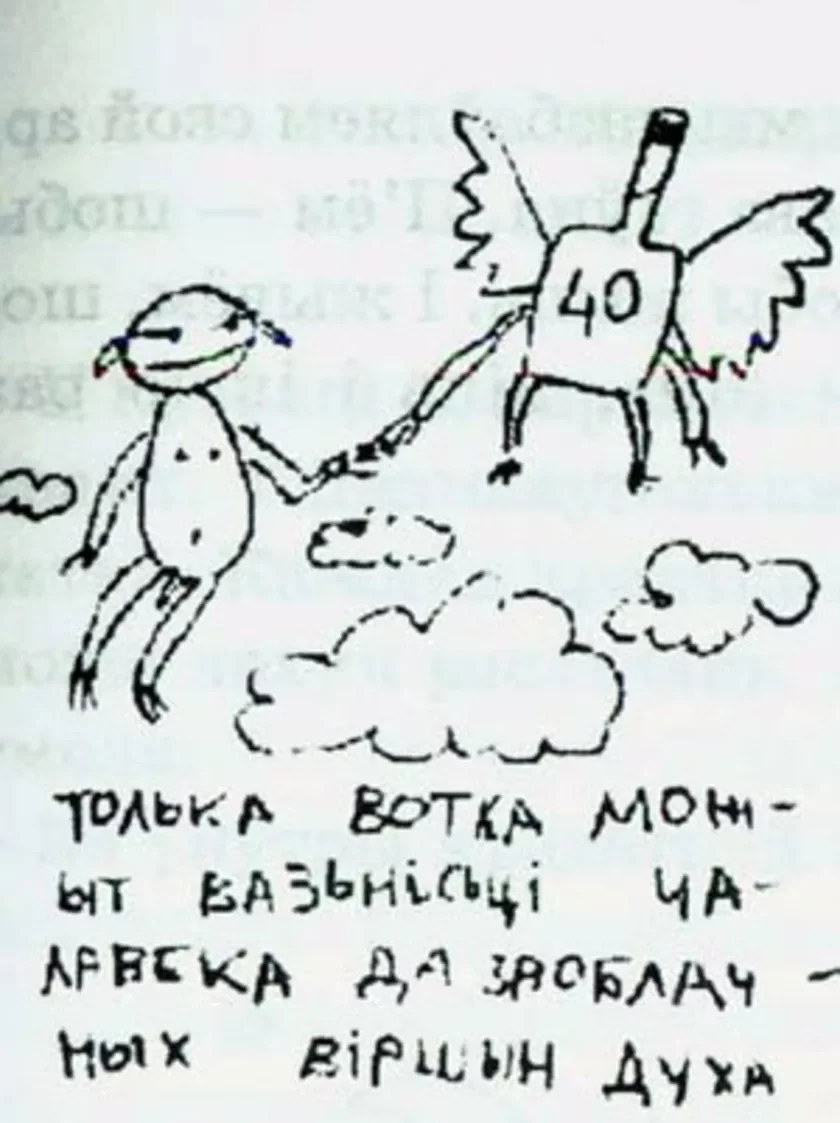 40
ТОЛЬКА ВОТКА МОЖ-
ЫТ ВАЗЬНІСЬЦІ ЧА-
ЛАВЕКА ДА ЗАОБЛАЧ-
НЫХ ВІРШЫН ДУХА